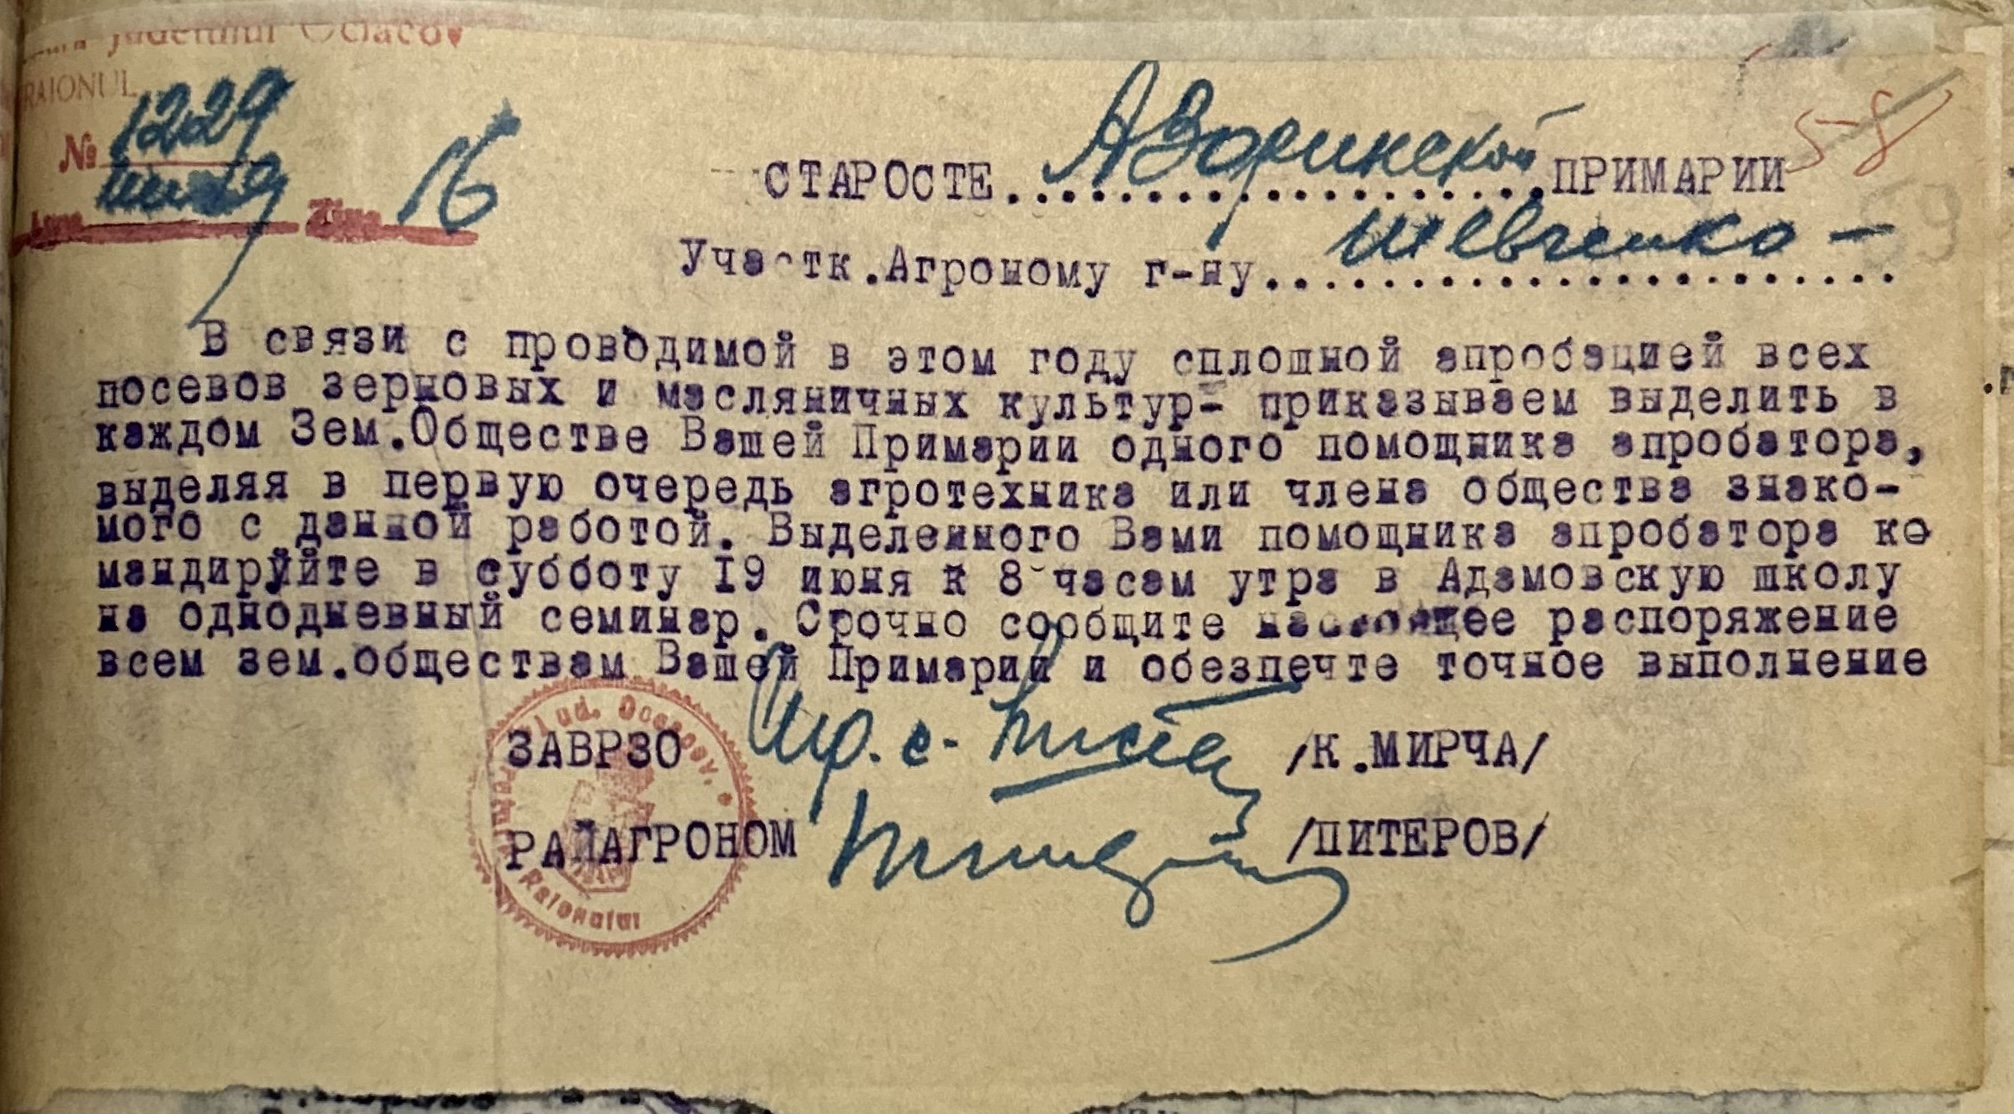 judetului Ociacov
RAIONUL
№ 1229
Luna июня Ziua 16
58
59
СТАРОСТЕ....................ПРИМАРИИ
Участк.Агроному г-ну Шевченко -
В связи с проводимой в этом году сплошной апробацией всех
посевов зерновых и масляничных культур- приказываем выделить в
каждом Зем.Обществе Вашей Примарии одного помощника апробатора,
выделяя в первую очередь агротехника или члена общества знако-
мого с данной работой. Выделенного Вами помощника апробатора ко
мандируйте в субботу 19 июня к 8 часам утра в Адамовскую школу
на однодневный семинар. Срочно сообщите настоящее распоряжение
всем зем.обществам Вашей Примарии и обезпечте точное выполнение
ЗАВРЗО /К.МИРЧА/
РАЙАГРОНОМ /ПИТЕРОВ/
Jud. Oceacov.
Raionului